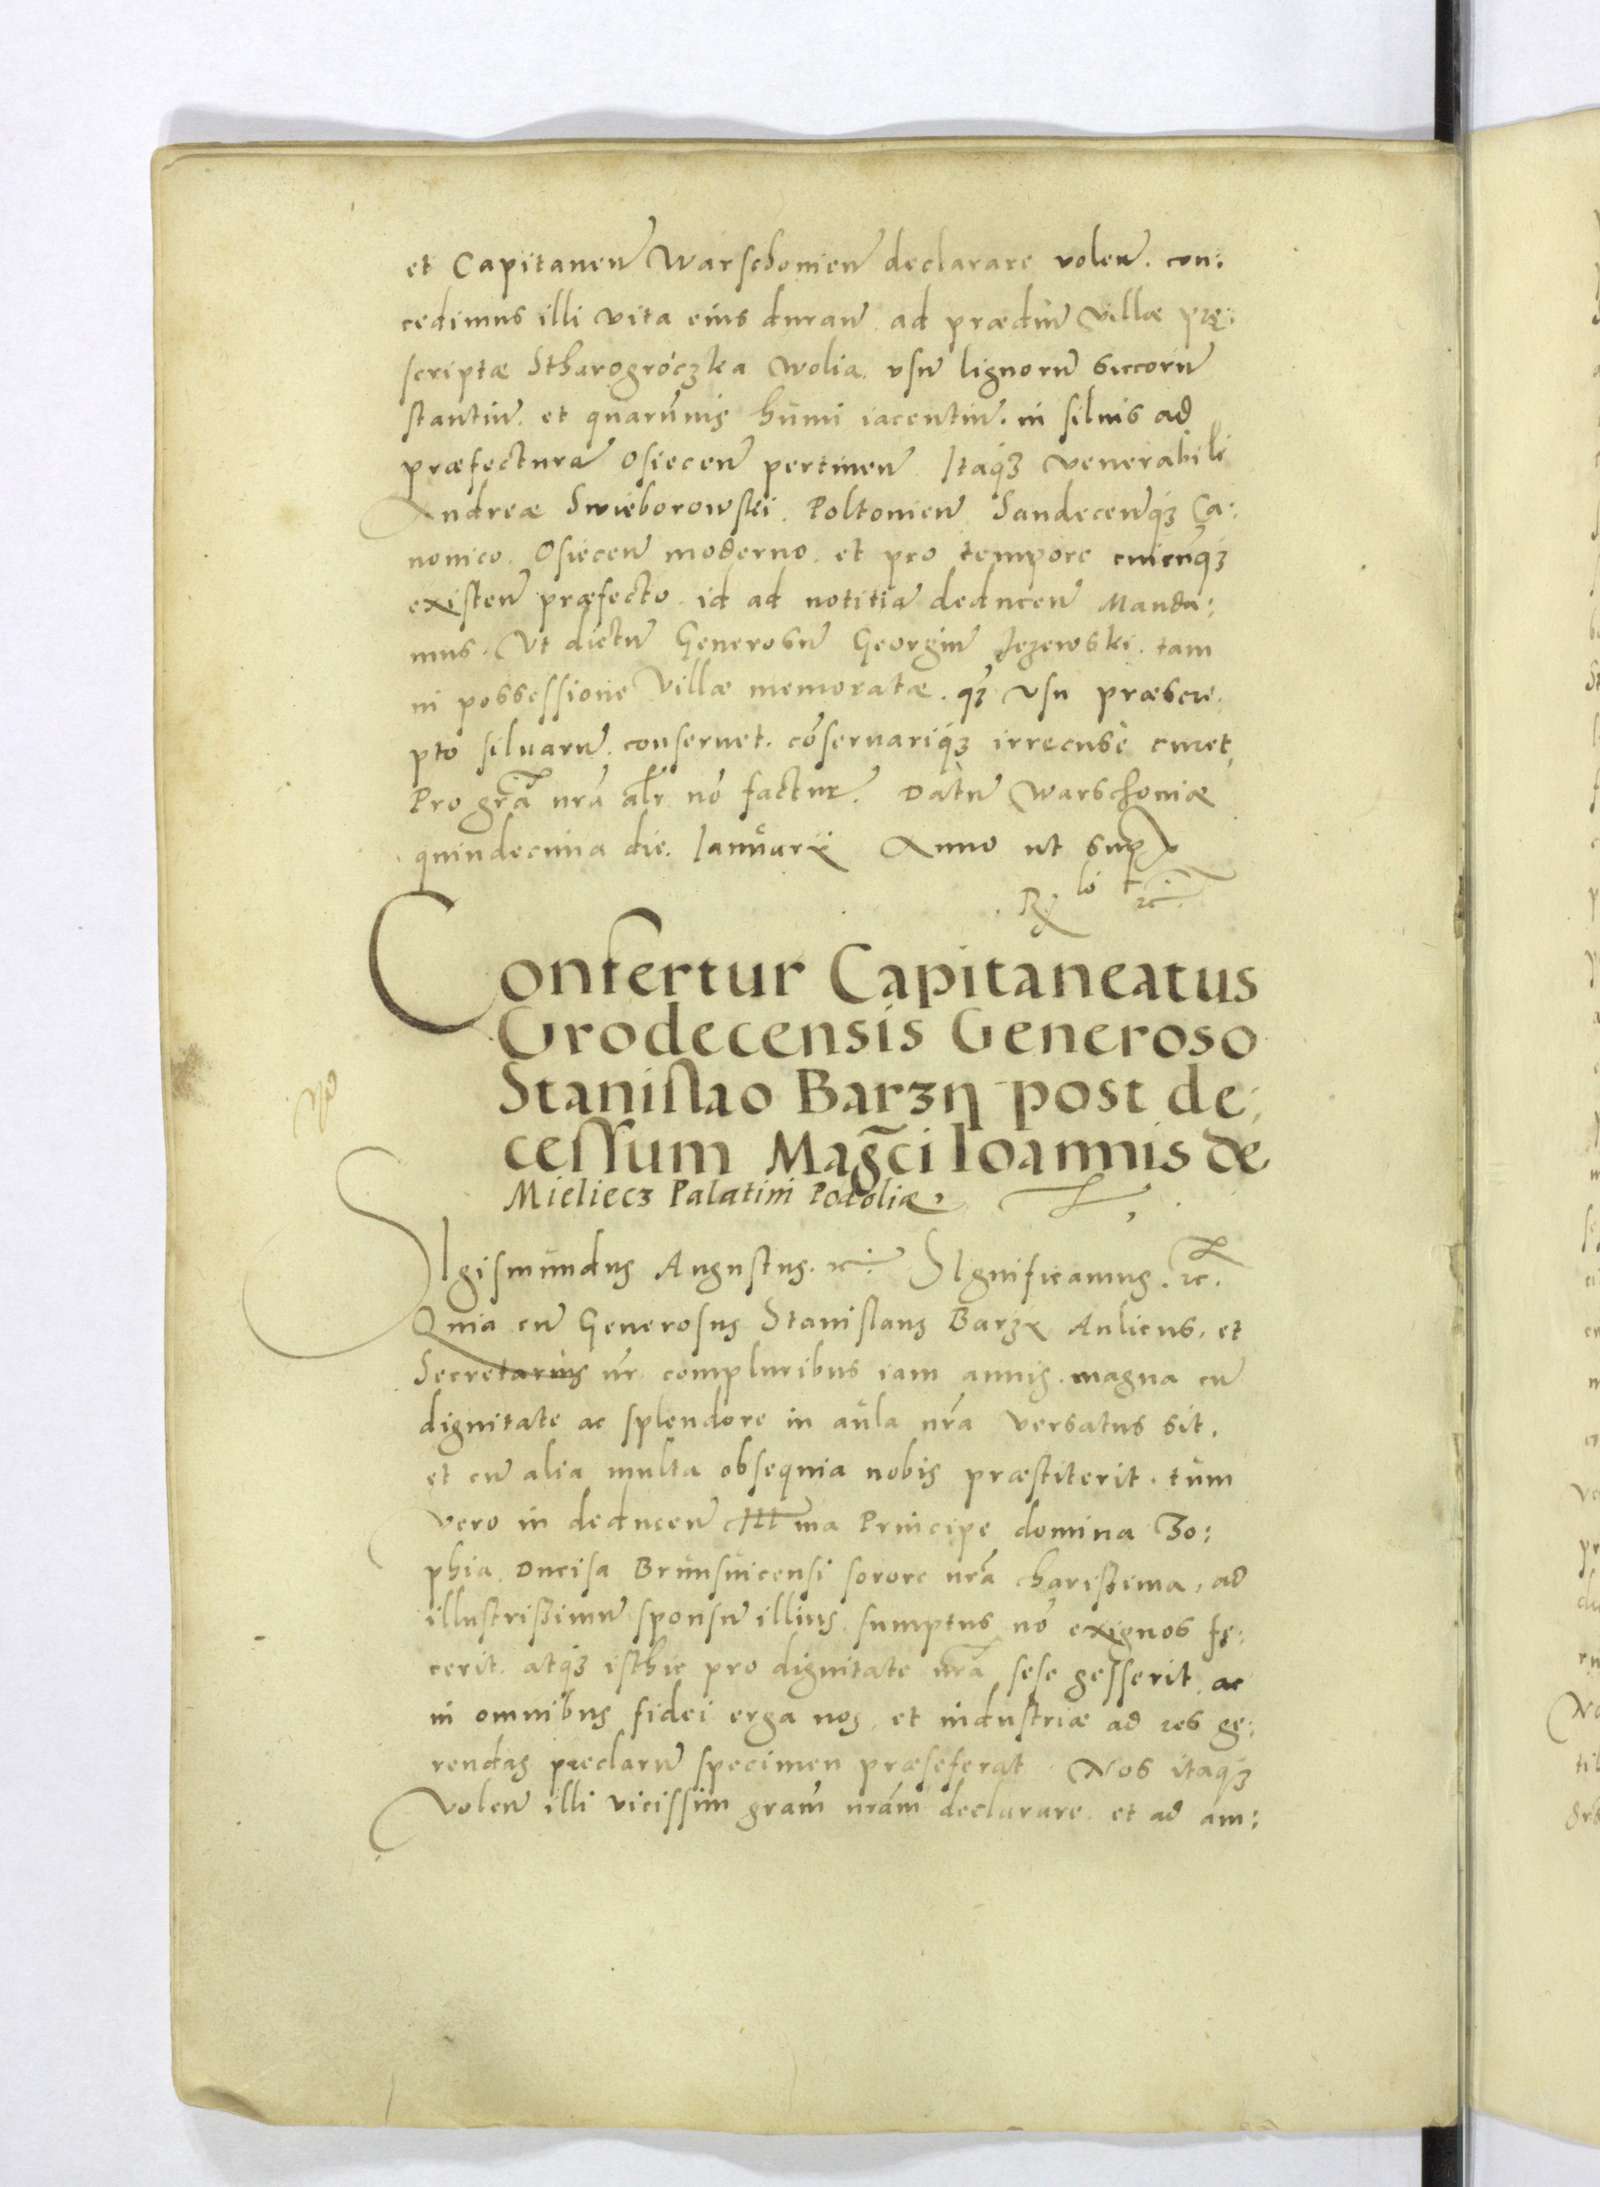 et Capitaneñ Warschonieñ declarare voleñ. con:
cedimus illi vita eius durañ. ad prædiũ villæ prę:
scriptæ Stharogróczka Wolia. vsũ lignorũ siccorũ
stantiũ. et quarũuis humi iacentiũ. in siluis ad
præfecturã Osieceñ pertineñ Itaq₃ venerabili
Andreæ Swieborowski. Poltonieñ Sandeceñq₃ Ca:
nonico. Osieceñ moderno. et pro tempore cuicũq₃
existeñ præfecto. id ad notitiã deduceñ Manda:
mus. Vt dictũ Generosũ Georgiũ Jezewski. tam
in possessione Villæ memoratæ. q₃ vsu præscri:
pto siluarũ. conseruet. cõseruariq₃ irrecusè curet,
Pro grã nrã alr nõ factur̃. Datũ Warschoniæ
quindecima die. Januarÿ Anno ut sup
Rx lõ rc.
Confertur Capitaneatus
Grodecensis Generoso
Stanislao Barzÿ post de:
cessum Mag̃ci Ioannis de
Mieliecz Palatini Podoliæ.
SIgismundus Augustus. rc. SIgnificamus. rc.
Quia cũ Generosus Stanislaus Barzÿ Aulicus, et
Secretarius nr̃ compluribus iam annis. magna cũ
dignitate ac splendore in aula nrã versatus sit,
et cũ alia multa obsequia nobis præstiterit. tum
vero in deduceñ Illma Principe domina Zo:
phia. Ducisa Brunsuicensi sorore nrã charißima, ad
illustrißimũ sponsũ illius. sumptus nõ exiguos fę:
cerit. atq₃ isthic pro dignitate nrã sese gesserit. ac
in omnibus fidei erga nos, et industriæ ad res ge:
rendas preclarũ specimen præseferat. Nos itaq₃
Voleñ illi vicissim gram̃ nram̃ declarare. et ad am: